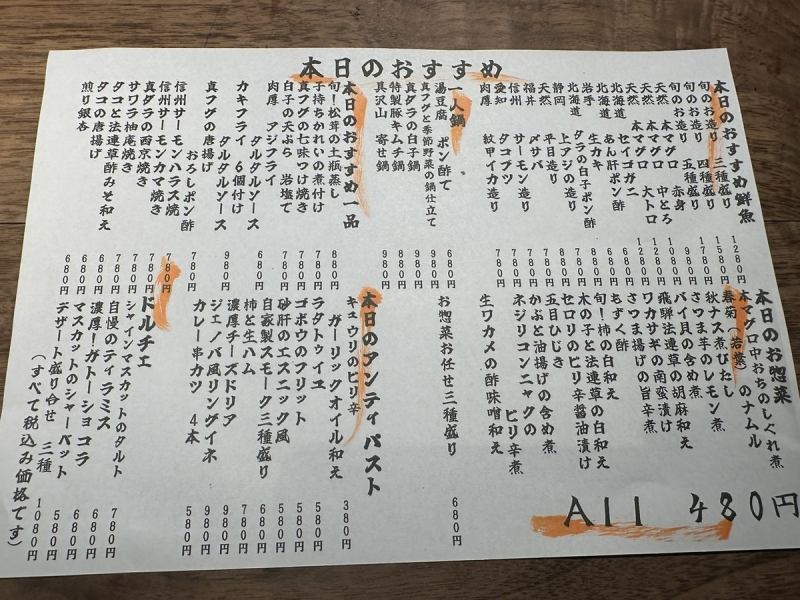 本日のおすすめ
本日のおすすめ鮮魚
旬のお造り 三種盛り 1280円
旬のお造り 四種盛り 1580円
旬のお造り 五種盛り 1780円
天然 本マグロ 赤身
天然 本マグロ 中とろ
天然 本マグロ 大トロ
北海道 セイコガニ
北海道 あん肝ポン酢
岩手 生カキ
北海道 タラの白子ポン酢
静岡 上アジの造り
天然 平目造り
福井 〆サバ
信州 サーモン造り
愛知 タコブツ
肉厚 紋甲イカ造り 780円
一人鍋
湯豆腐 ポン酢で 680円
真フグと季節野菜の鍋仕立て 980円
真ダラの白子鍋 980円
特製豚キムチ鍋 880円
具沢山 寄せ鍋 980円
本日のおすすめ一品
旬！松茸の土瓶蒸し 880円
子持ちかれいの煮付け
真フグの七味つけ焼き
白子の天ぷら 岩塩で
肉厚 アジフライ
タルタルソース 680円
カキフライ 6個付け
タルタルソース 980円
真フグの唐揚げ
おろしポン酢 780円
信州サーモンハラス焼 780円
信州サーモンカマ焼き 780円
真ダラの西京焼き 780円
サワラ柚庵焼き 780円
タコと法連草酢みそ和え 680円
タコの唐揚げ 680円
煎り銀杏 680円
本日のお惣菜
本マグロ中おちのしぐれ煮
春菊（若葉）のナムル
秋ナス煮びたし
さつま芋のレモン煮
バイ貝の含め煮
飛騨法連草の胡麻和え
ワカサギの南蛮漬け
さつま揚げの旨辛煮
もずく酢
旬！柿の白和え
木の子と法連草の白和え
セロリのピリ辛醤油漬け
五目ひじき
かぶと油揚げの含め煮
ネジリコンニャクの
ピリ辛煮
生ワカメの酢味噌和え
お惣菜お任せ三種盛り 680円
All 480円
本日のアンティパスト
キュウリのピリ辛
ガーリックオイル和え 380円
ラタトゥイユ 580円
ゴボウのフリット 580円
砂肝のエスニック風 580円
自家製スモーク三種盛り 680円
柿と生ハム 780円
濃厚チーズドリア 980円
ジェノバ風リングイネ 980円
カレー串カツ 4本 580円
ドルチェ
シャインマスカットのタルト 780円
自慢のティラミス 680円
濃厚！ガトーショコラ 680円
マスカットのシャーベット 580円
デザート盛り合せ 三種 1080円
（すべて税込み価格です）